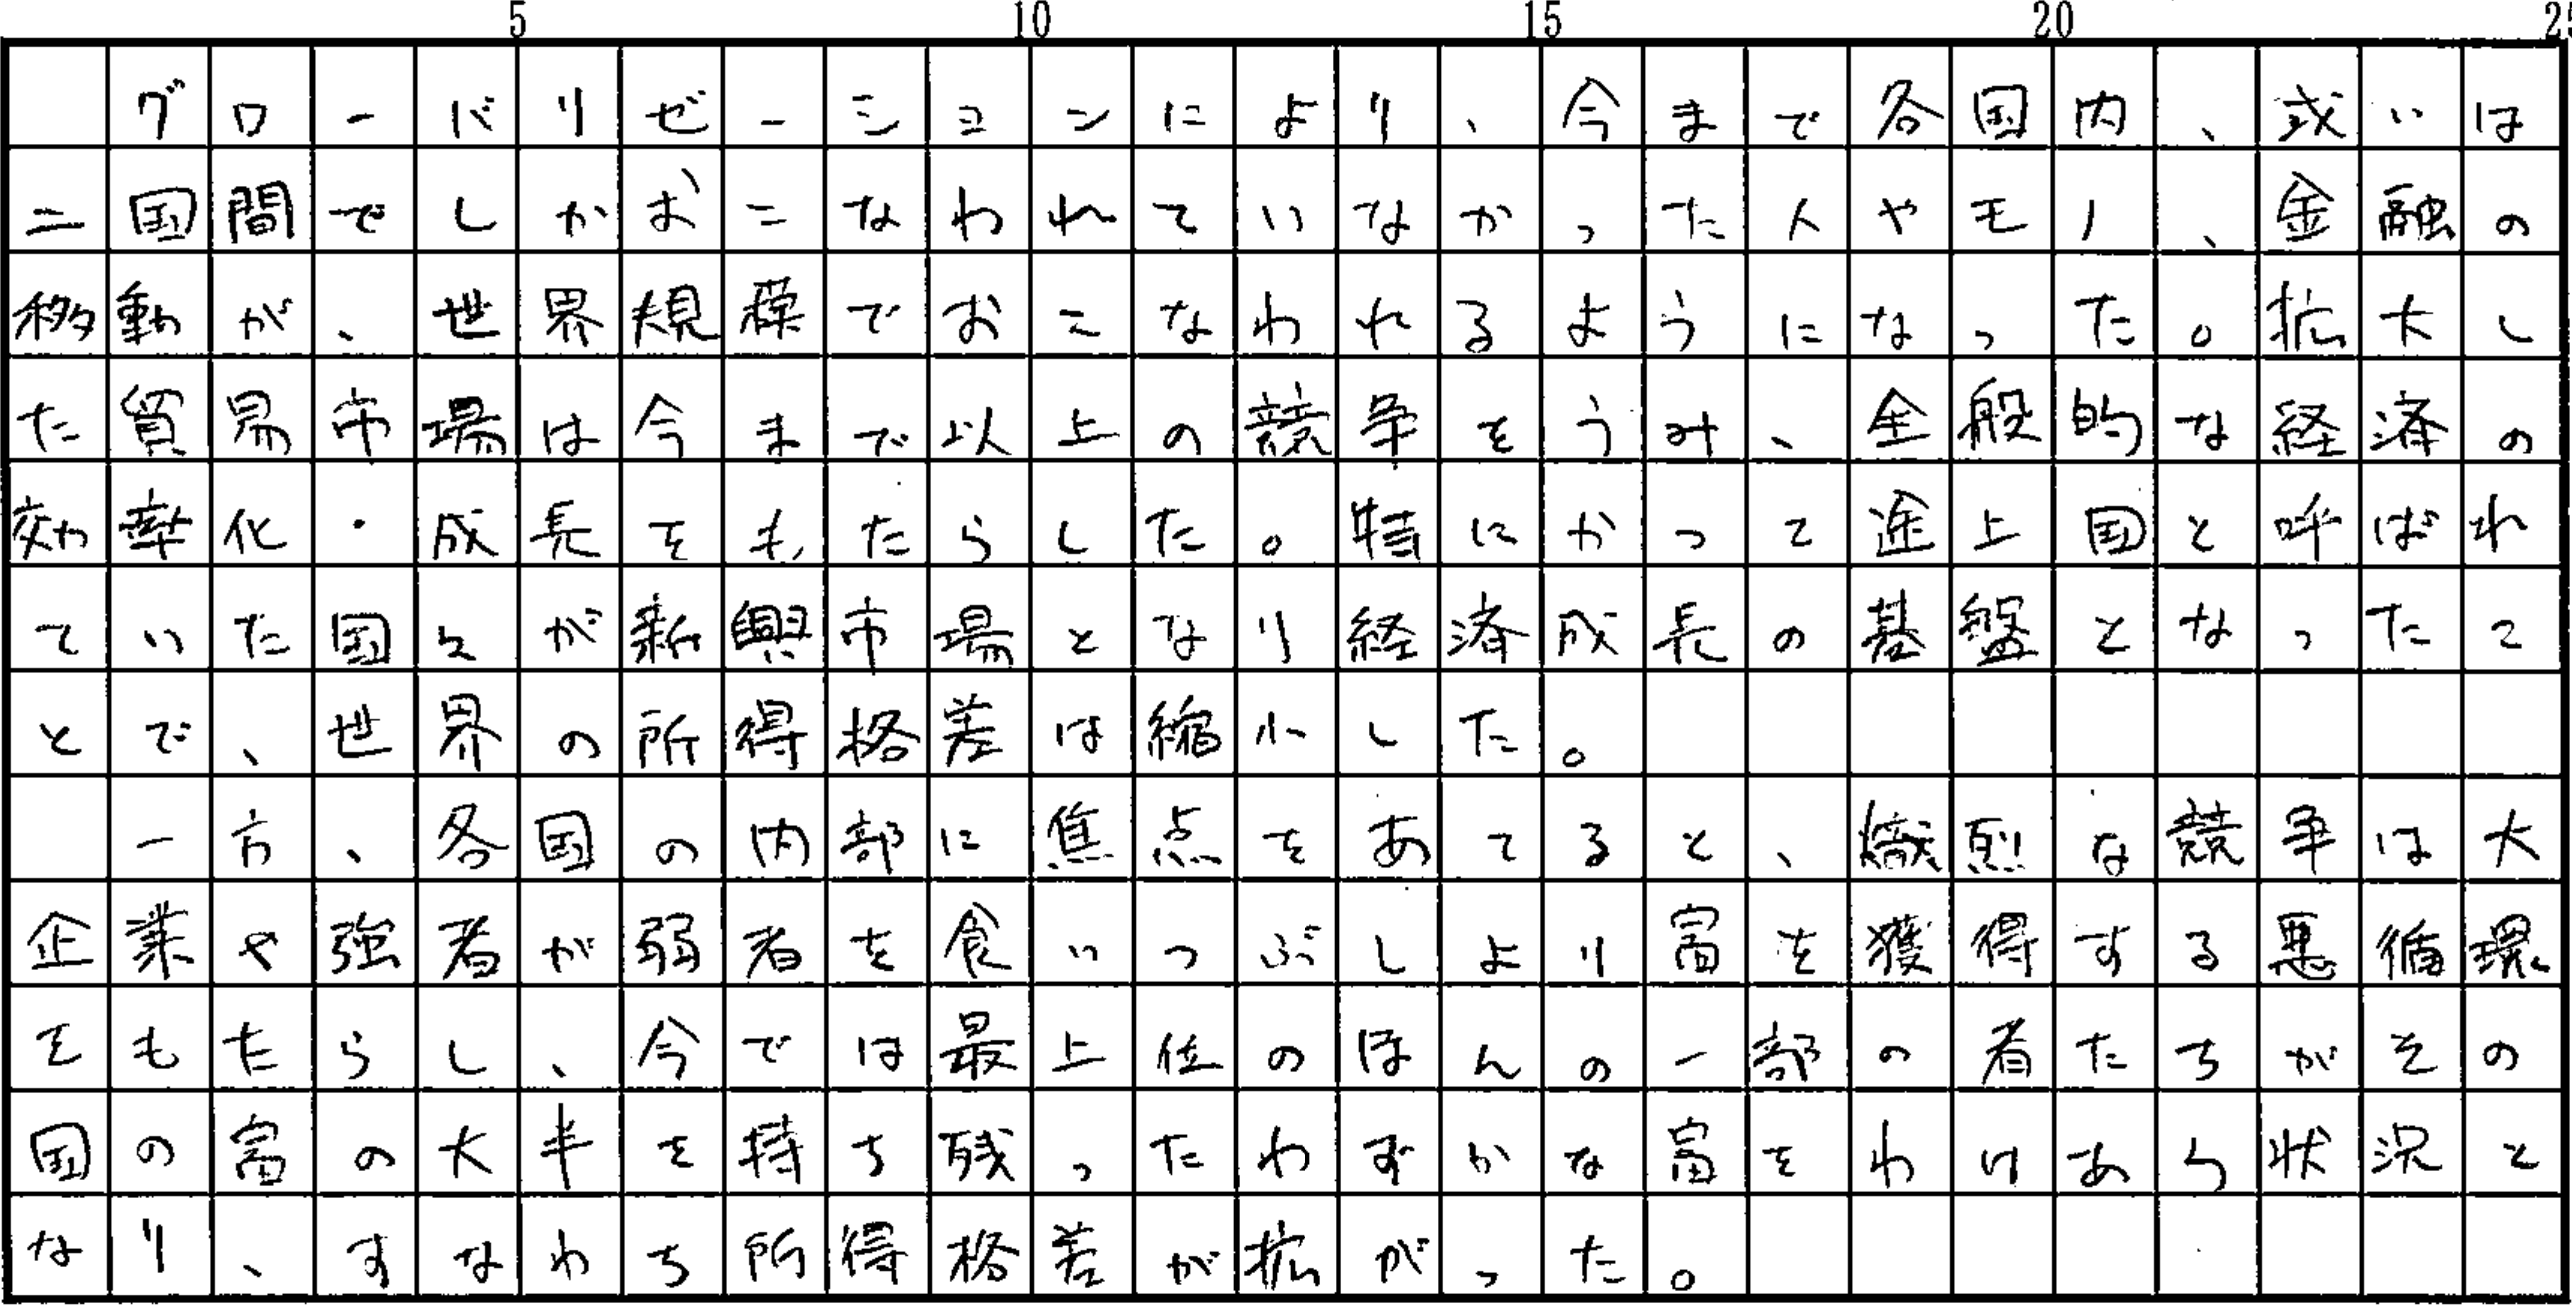 5 10 15 20 25
グローバリゼーションにより、今まで各国内、或いは
二国間でしかおこなわれていなかった人やモノ、金融の
移動が、世界規模でおこなわれるようになった。拡大し
た貿易市場は今まで以上の競争をうみ、全般的な経済の
効率化・成長をもたらした。特にかつて途上国と呼ばれ
ていた国々が新興市場となり経済成長の基盤となったこ
とで、世界の所得格差は縮小した。
一方、各国の内部に焦点をあてると、熾烈な競争は大
企業や強者が弱者を食いつぶしより富を獲得する悪循環
をもたらし、今では最上位のほんの一部の者たちがその
国の富の大半を持ち残ったわずかな富をわけあう状況と
なり、すなわち所得格差が拡がった。